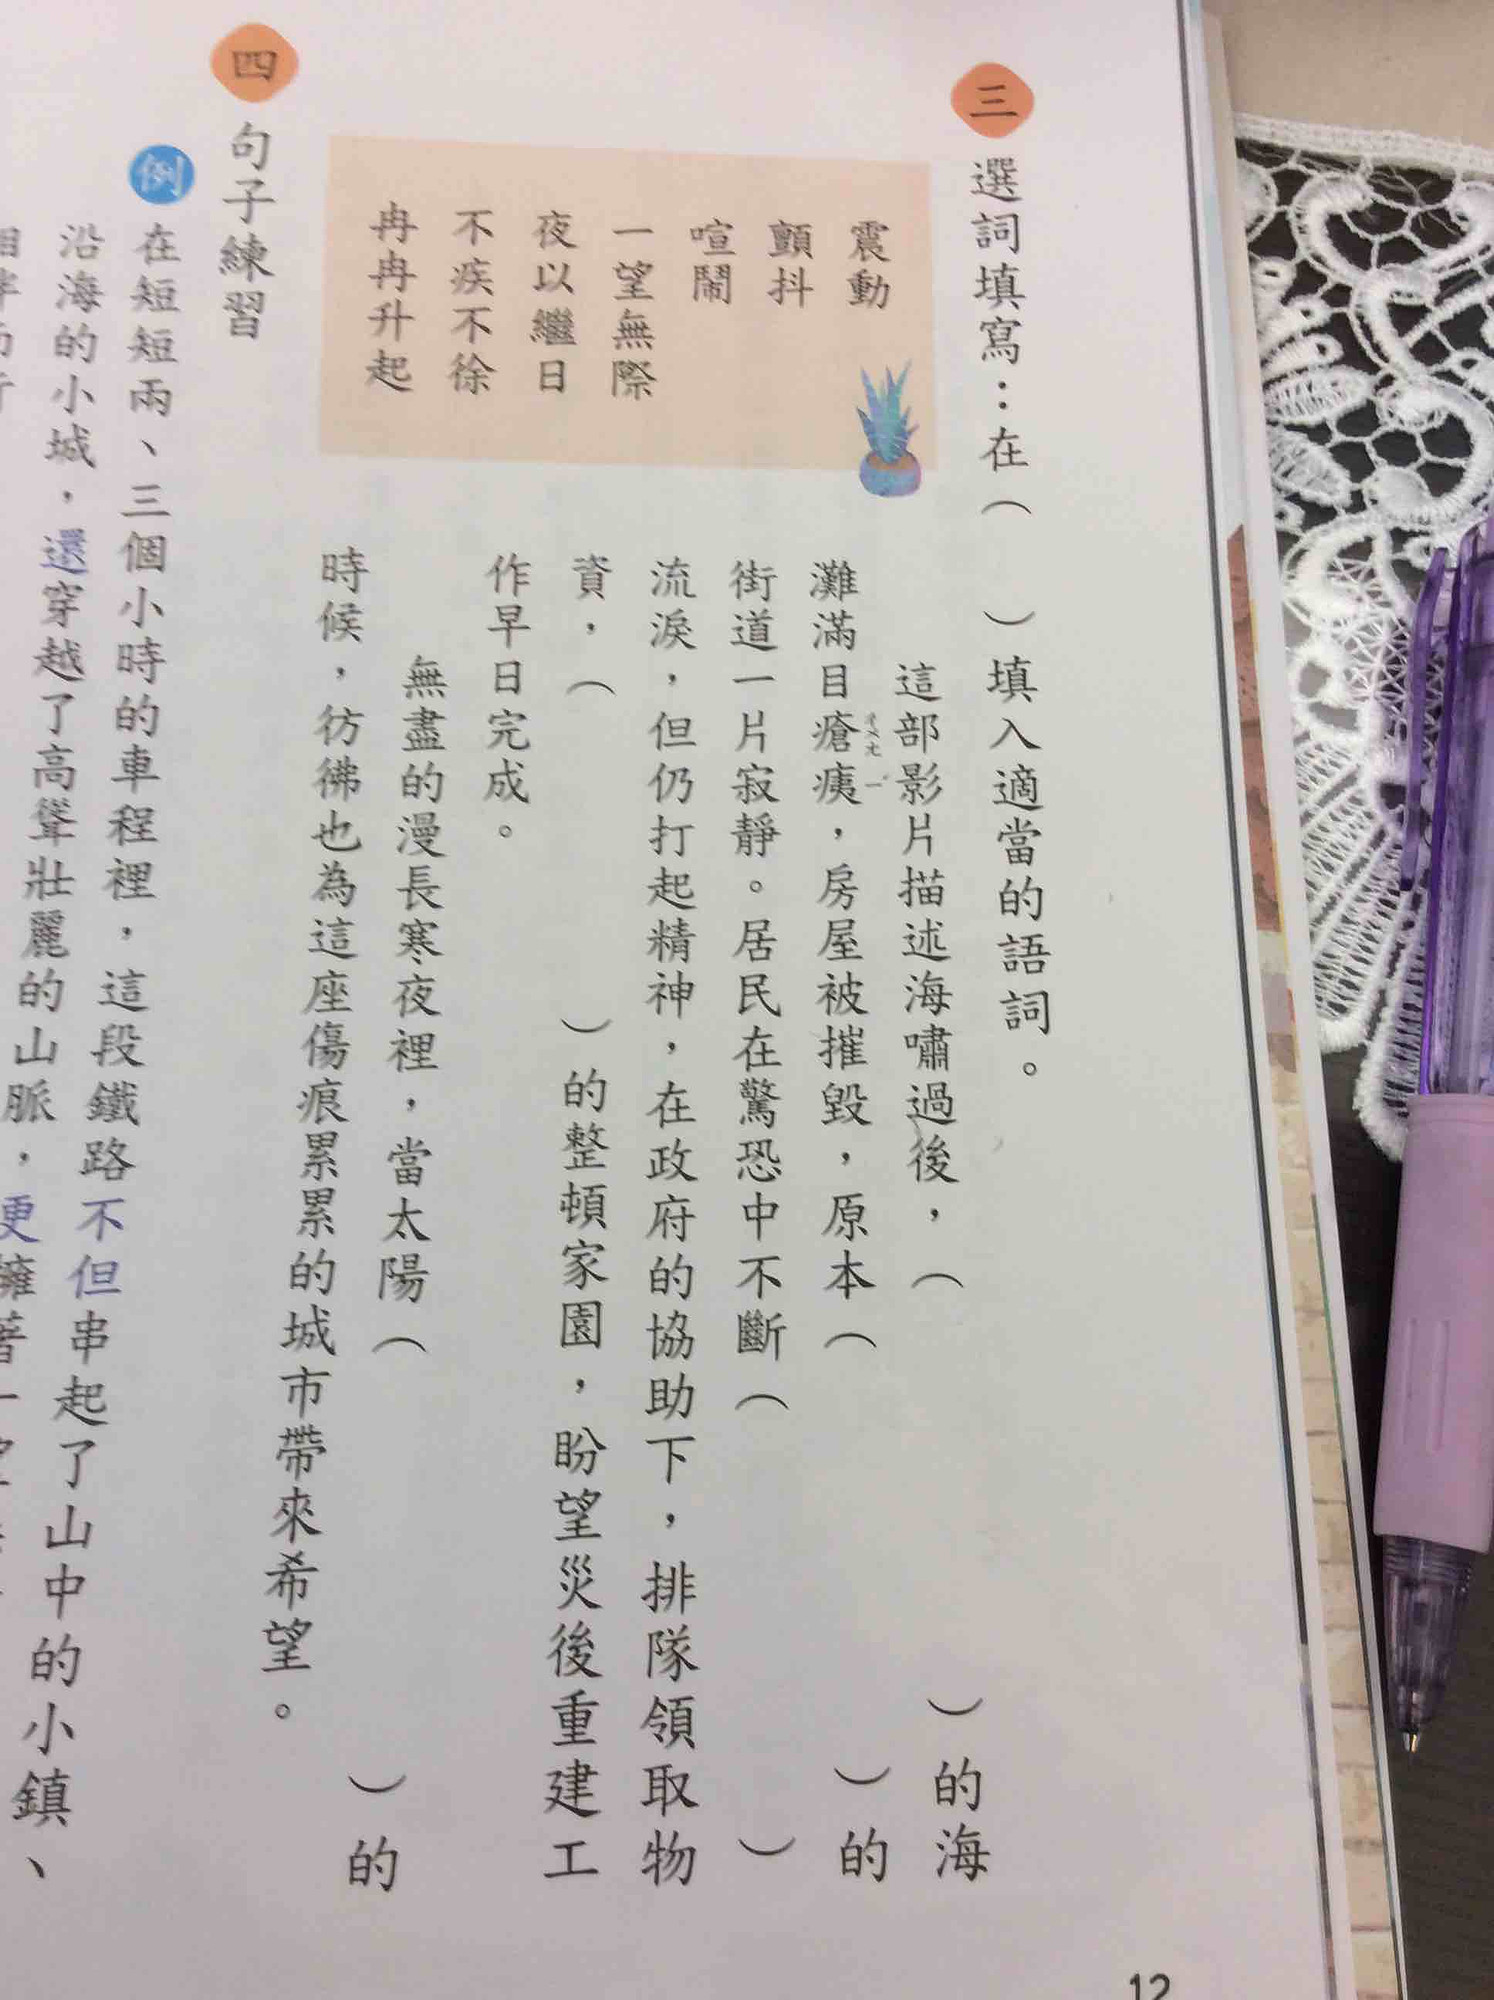 三 選詞填寫：在（ ）填入適當的語詞。
震動
顫抖
喧鬧
一望無際
夜以繼日
不疾不徐
冉冉升起
這部影片描述海嘯過後，（ ）的海
灘滿目瘡痍，房屋被摧毀，原本（ ）的
ㄔㄨㄤ ㄧˊ
街道一片寂靜。居民在驚恐中不斷（ ）
流淚，但仍打起精神，在政府的協助下，排隊領取物
資，（ ）的整頓家園，盼望災後重建工
作早日完成。
無盡的漫長寒夜裡，當太陽（ ）的
時候，彷彿也為這座傷痕累累的城市帶來希望。
四 句子練習
例 在短短兩、三個小時的車程裡，這段鐵路不但串起了山中的小鎮、
沿海的小城，還穿越了高聳壯麗的山脈，更擁著一望
12